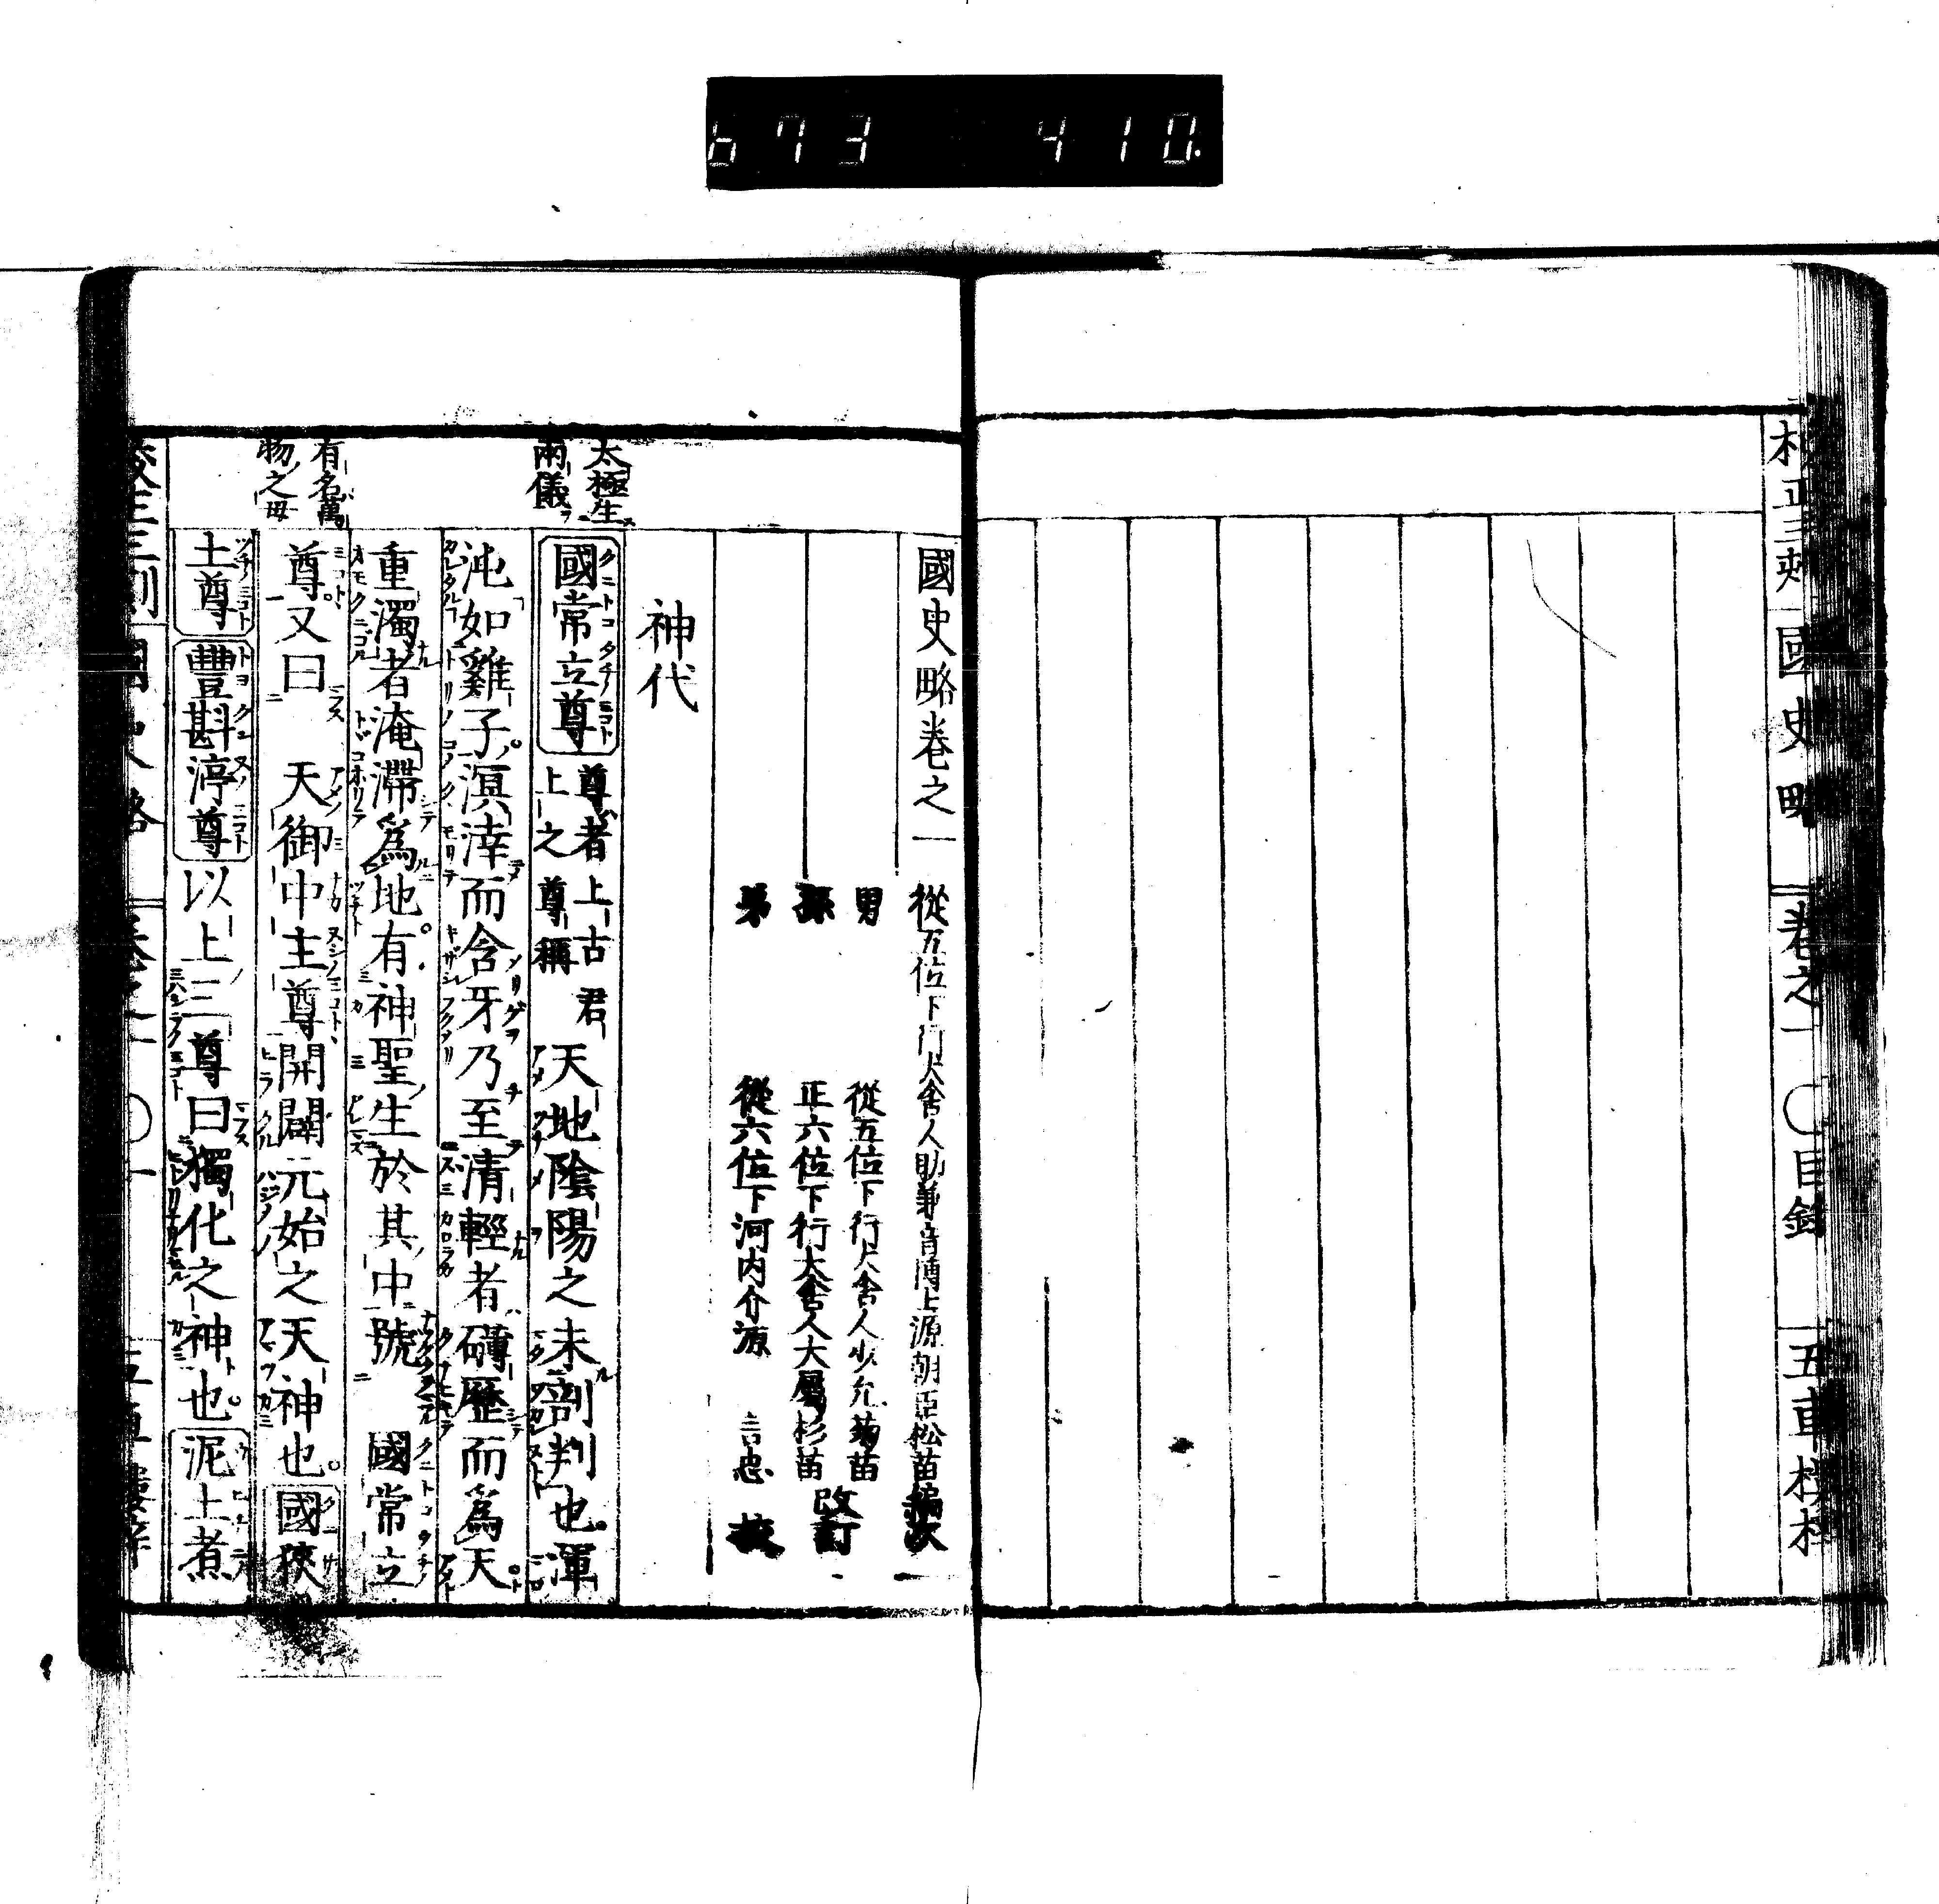 673 410.
校正三刻 國史略 卷之一 〇目錄 五車樓梓
國史略卷之一
從五位下行大舍人助兼音博士源朝臣松苗編次
男 從五位下行大舍人少允菊苗
孫 正六位下行大舍人大屬杉苗 改訂
弟 從六位下河内介源 言忠 校
神代
太極生
兩儀
國常立尊 尊者上古君
上之尊稱 天地陰陽之未剖判也。渾
沌如雞子。溟涬而含牙乃至清輕者礴歷而爲天
重濁者淹滯爲地。有神聖生於其中號 國常立
有名萬
物之母
尊。又曰 天御中主尊開闢元始之天神也。國狹
土尊 豐斟渟尊 以上三尊曰獨化之神也。泥土煮
校正三刻 國史略 卷之一 〇一 五車樓梓